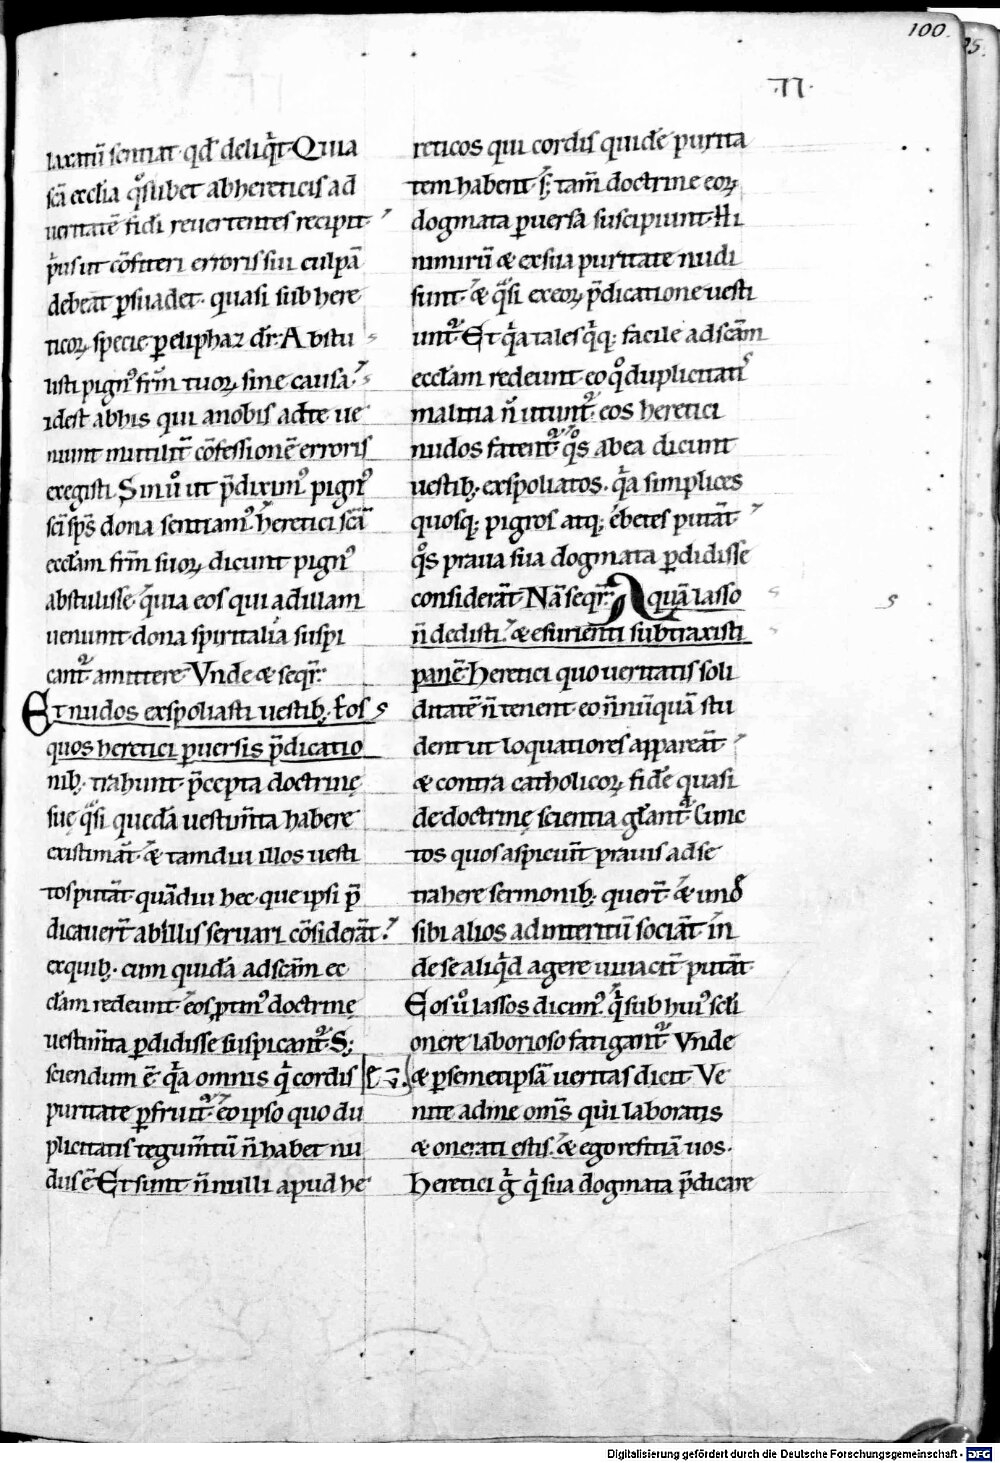 100.
95.
·π·
laxatũ sentiat qđ deliq̃t· Quia
scã ecclia q̊s iubet ab hereticis ad
ueritatẽ fidi reuertentes recipit·
p̃us ut cõfiteri erroris sui culpã
debeãt ꝑsuadet· quasi sub here
ticoꝝ specie ꝑ eliphaz dr̃· Abstu
listi pignꝰ frm̃ tuoꝝ sine causa·
idest ab his qui a nobis ad te ue
niunt inutilit̃ cõfessionẽ erroris
exegisti· Sin ů ut p̃diximꝰ pignꝰ
sci sps̃ dona sentiamꝰ· heretici scã
eccłam frm̃ suoꝝ dicunt pignꝰ
abstulisse· quia eos qui ad illam
ueniunt dona spiritalia suspi
cant᷑ amittere· Vnde & seqr̃·
Et nudos exspoliasti uestibꝫ· Eos
quos heretici ꝑuersis p̃dicatio
nibꝫ trahunt· p̃cepta doctrinę
suę q̃si quedã uestim̃ta habere
existimãt· & tamdiu illos uesti
tos putãt quãdiu hec que ipsi p̃
dicauer̃t ab illis seruari cõsiderãt·
ex quibꝫ· cum quidã ad scãm ec
cłam redeunt· eos ꝓtinꝰ doctrinę
uestim̃ta ꝑdidisse suspicant᷑· S;
sciendum ẽ q̃a omnis q̃ cordis
puritate ꝑfruit᷑· eo ipso quo du
plicitatis tegum̃tũ ñ habet nu
dus ẽ· Et sunt ñnulli apud he
reticos qui cordis quidẽ purita
tem habent· s; tam̃ doctrine eoꝝ
dogmata ꝑuersa suscipiunt· Hi
nimirũ & ex sua puritate nudi
sunt· & q̃si ex eoꝝ p̃dicatione uesti
unt᷑· Et q̃a tales q̃qꝫ facile ad scãm
eccłam redeunt eo q̊ duplicitatis
malitia ñ utunt᷑· eos heretici
nudos fatent᷑· q̊s ab ea dicunt
uestibꝫ exspoliatos· q̃a simplices
quosqꝫ pigros atqꝫ ebetes putãt·
q̊s praua sua dogmata ꝑdidisse
considerãt· Nã seqr̃· Aquã lasso
ñ dedisti· & esurienti subtraxisti
panẽ· Heretici quo ueritatis soli
ditatẽ ñ tenent· eo ñnũquã stu
dent ut loquatiores appareãt·
& contra catholicoꝝ fidẽ quasi
de doctrinę scientia głant᷑· Cunc
tos quos aspiciunt prauis ad se
trahere sermonibꝫ quer̃t· & unđ
sibi alios ad interitũ sociãt in
de se aliq̃d agere uiuacit̃ putãt·
Eos ů lassos dicimꝰ· q̃ sub huiꝰ scłi
onere laborioso fatigant᷑· Vnde
& ꝑ semetipsã ueritas dicit· Ve
nite ad me om̃s qui laboratis
& onerati estis· & ego reficiã uos·
Heretici g̃ q̃ sua dogmata p̃dicare
Digitalisierung gefördert durch die Deutsche Forschungsgemeinschaft - DFG